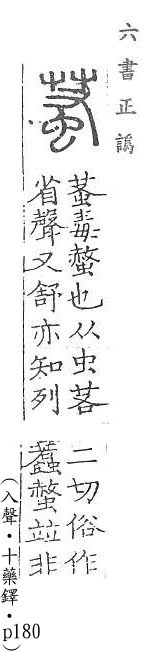 六書正譌
毒螫也从虫若
省聲又舒亦知列
二切俗作
蠚螫竝非
(入聲・十藥鐸・p180)